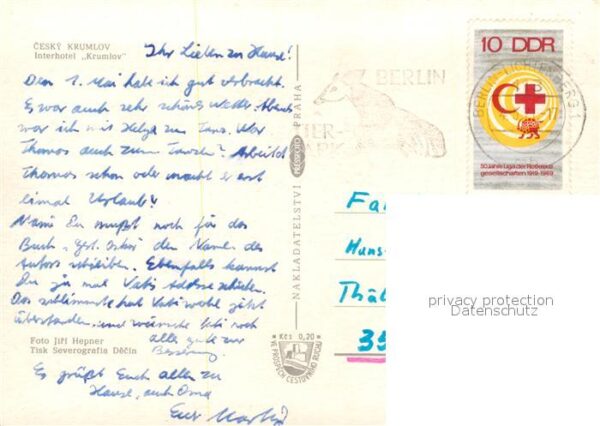 ČESKÝ KRUMLOV
Interhotel „Krumlov"
Ihr Lieben zu Hause!
Den 1. Mai habe ich gut verbracht.
Es war auch sehr schönes Wetter. Abends
war ich mit Helga zum Tanz. War
Thomas auch zum Tanzen? Arbeitet
Thomas schon oder macht er erst
einmal Urlaub?
noch für das
Buch den Namen des
Autors schreiben. Ebenfalls kannst
Du ja mal Vatis Adresse schicken.
Das schlimmste hat Vati wohl jetzt
überstanden, und wünsche ihm noch
alles gute zur
Besserung.
Es grüßt Euch allen zu
Hause, auch Oma
Euer
Foto Jiří Hepner
Tisk Severografia Děčín
NAKLADATELSTVÍ PRESSFOTO PRAHA
Kčs 0,20
VE PROSPĚCH CESTOVNÍHO RUCHU
BERLIN
TIER
PARK
BERLIN
10 DDR
50 Jahre Liga der Rotkreuz-
gesellschaften 1919-1969
Fa
Hans-
Thäl
35
privacy protection
Datenschutz